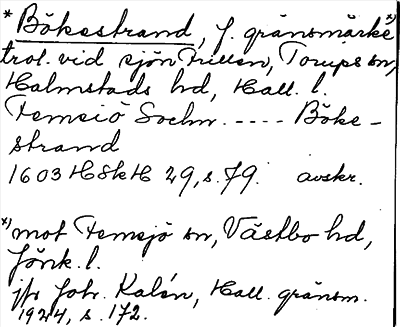 * Bökestrand, f. gränsmärke *)
trol. vid sjön Frillen, Torups sn,
Halmstads hd, Hall. l.
Femsiö Sochn. ---- Böke-
strand
1603 HSkH 29, s. 79. avskr.
*) mot Femsjö sn, Västbo hd,
Jönk. l.
jfr Joh. Kalén, Hall. gränsm.
1924, s. 172.